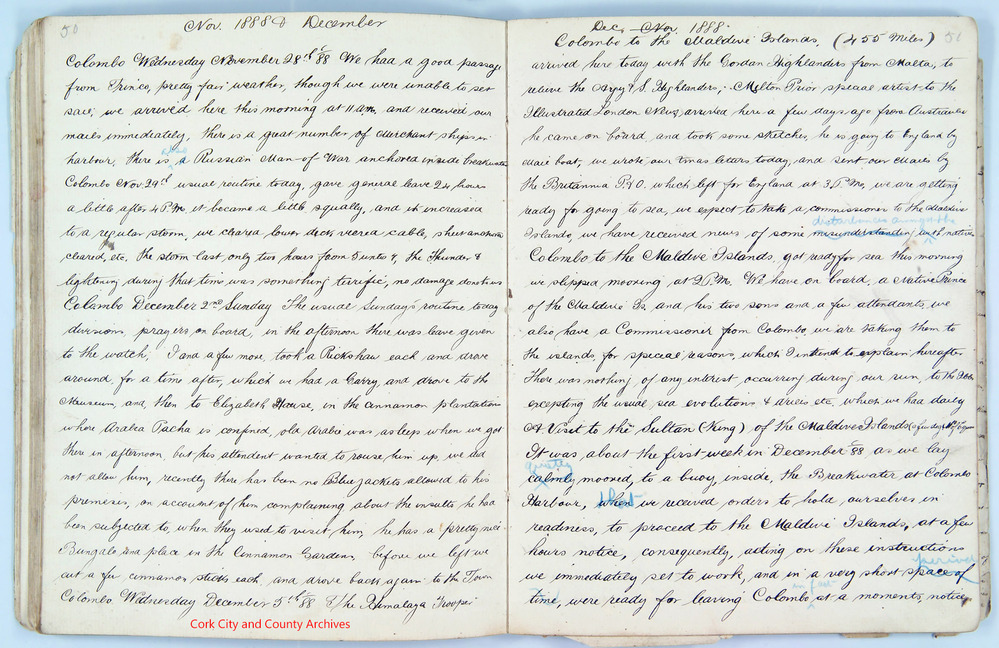 50
Nov. 1888 & December
Colombo Wednesday November 28th /88 We had a good passage
from Trinco, pretty fair weather, though we were unable to set
sail, we arrived here this morning at 11 a.m. and received our
mails immediately, there is a great number of Merchant ships in
harbour, there is also a Russian Man of War anchored inside breakwater
Colombo Nov. 29th usual routine today, gave general leave 24 hours
a little after 4 P.M. it became a little squally, and it increased
to a regular storm, we cleared lower deck veered cable, sheet anchor
cleared, etc, the storm last only two hours from 5 unto 7, the Thunder &
lightening during that time was something terrific, no damage done to us
Colombo December 2nd Sunday The usual Sunday's routine today
divisions, prayers on board, in the afternoon there was leave given
to the watch, I and a few more, took a Rickshaw each and drove
around for a time after, which we had a Garry, and drove to the
Museum, and then to Elizabeth House, in the cinnamon plantations
where Arabia Pacha is confined, old Arabia was asleep when we got
there in afternoon, but his attendent wanted to rouse him up, we did
not allow him, recently there has been no Blue jackets allowed to his
premesis, on account of him complaining about the insults he had
been subjected to, when they used to visit him, he has a pretty nice
Bungalo and place in the Cinnamon Gardens, before we left we
cut a few cinnamon sticks each, and drove back again to the Town
Colombo Wednesday December 5th /88 The Himalaya Trooper
Cork City and County Archives
Dec. Nov. 1888.
51
Colombo to the Maldive Islands, (455 Miles)
arrived here today with the Gordan Highlanders from Malta, to
relieve the Argy & S. Highlanders; Milton Prior special artist to the
Illustrated London News, arrived here a few days ago from Australia
he came on board, and took some sketches, he is going to England by
Mail boat, we wrote our Xmas letters today, and sent our Mails by
the Britannia P&O. which left for England at 3 P.M. we are getting
ready for going to sea, we expect to take a commissioner to the Maldive
disturbances amongst the
Islands, we have received news of some misunderstanding with natives
Colombo to the Maldive Islands, got ready for sea this morning
we slipped mooring at 2 P.M. We have on board, a Native Prince
of the Maldive Is, and his two sons and a few attendants, we
also have a Commissioner from Colombo, we are taking them to
the islands, for special reasons, which I intend to explain hereafter
There was nothing of any interest occurring during our run, to the
excepting the usual sea evolutions & drills etc, which we had daily
A Visit to the Sultan (King) of the Maldive Islands
It was about the first week in December /88 as we lay
quietly
calmly moored, to a buoy, inside, the Breakwater at Colombo
Harbour, when we received orders to hold ourselves in
readiness, to proceed to the Maldive Islands, at a few
hours notice, consequently, acting on these instructions
period
we immediately set to work, and in a very short space of
in fact
time, were ready for leaving Colombo, at a moments, notice